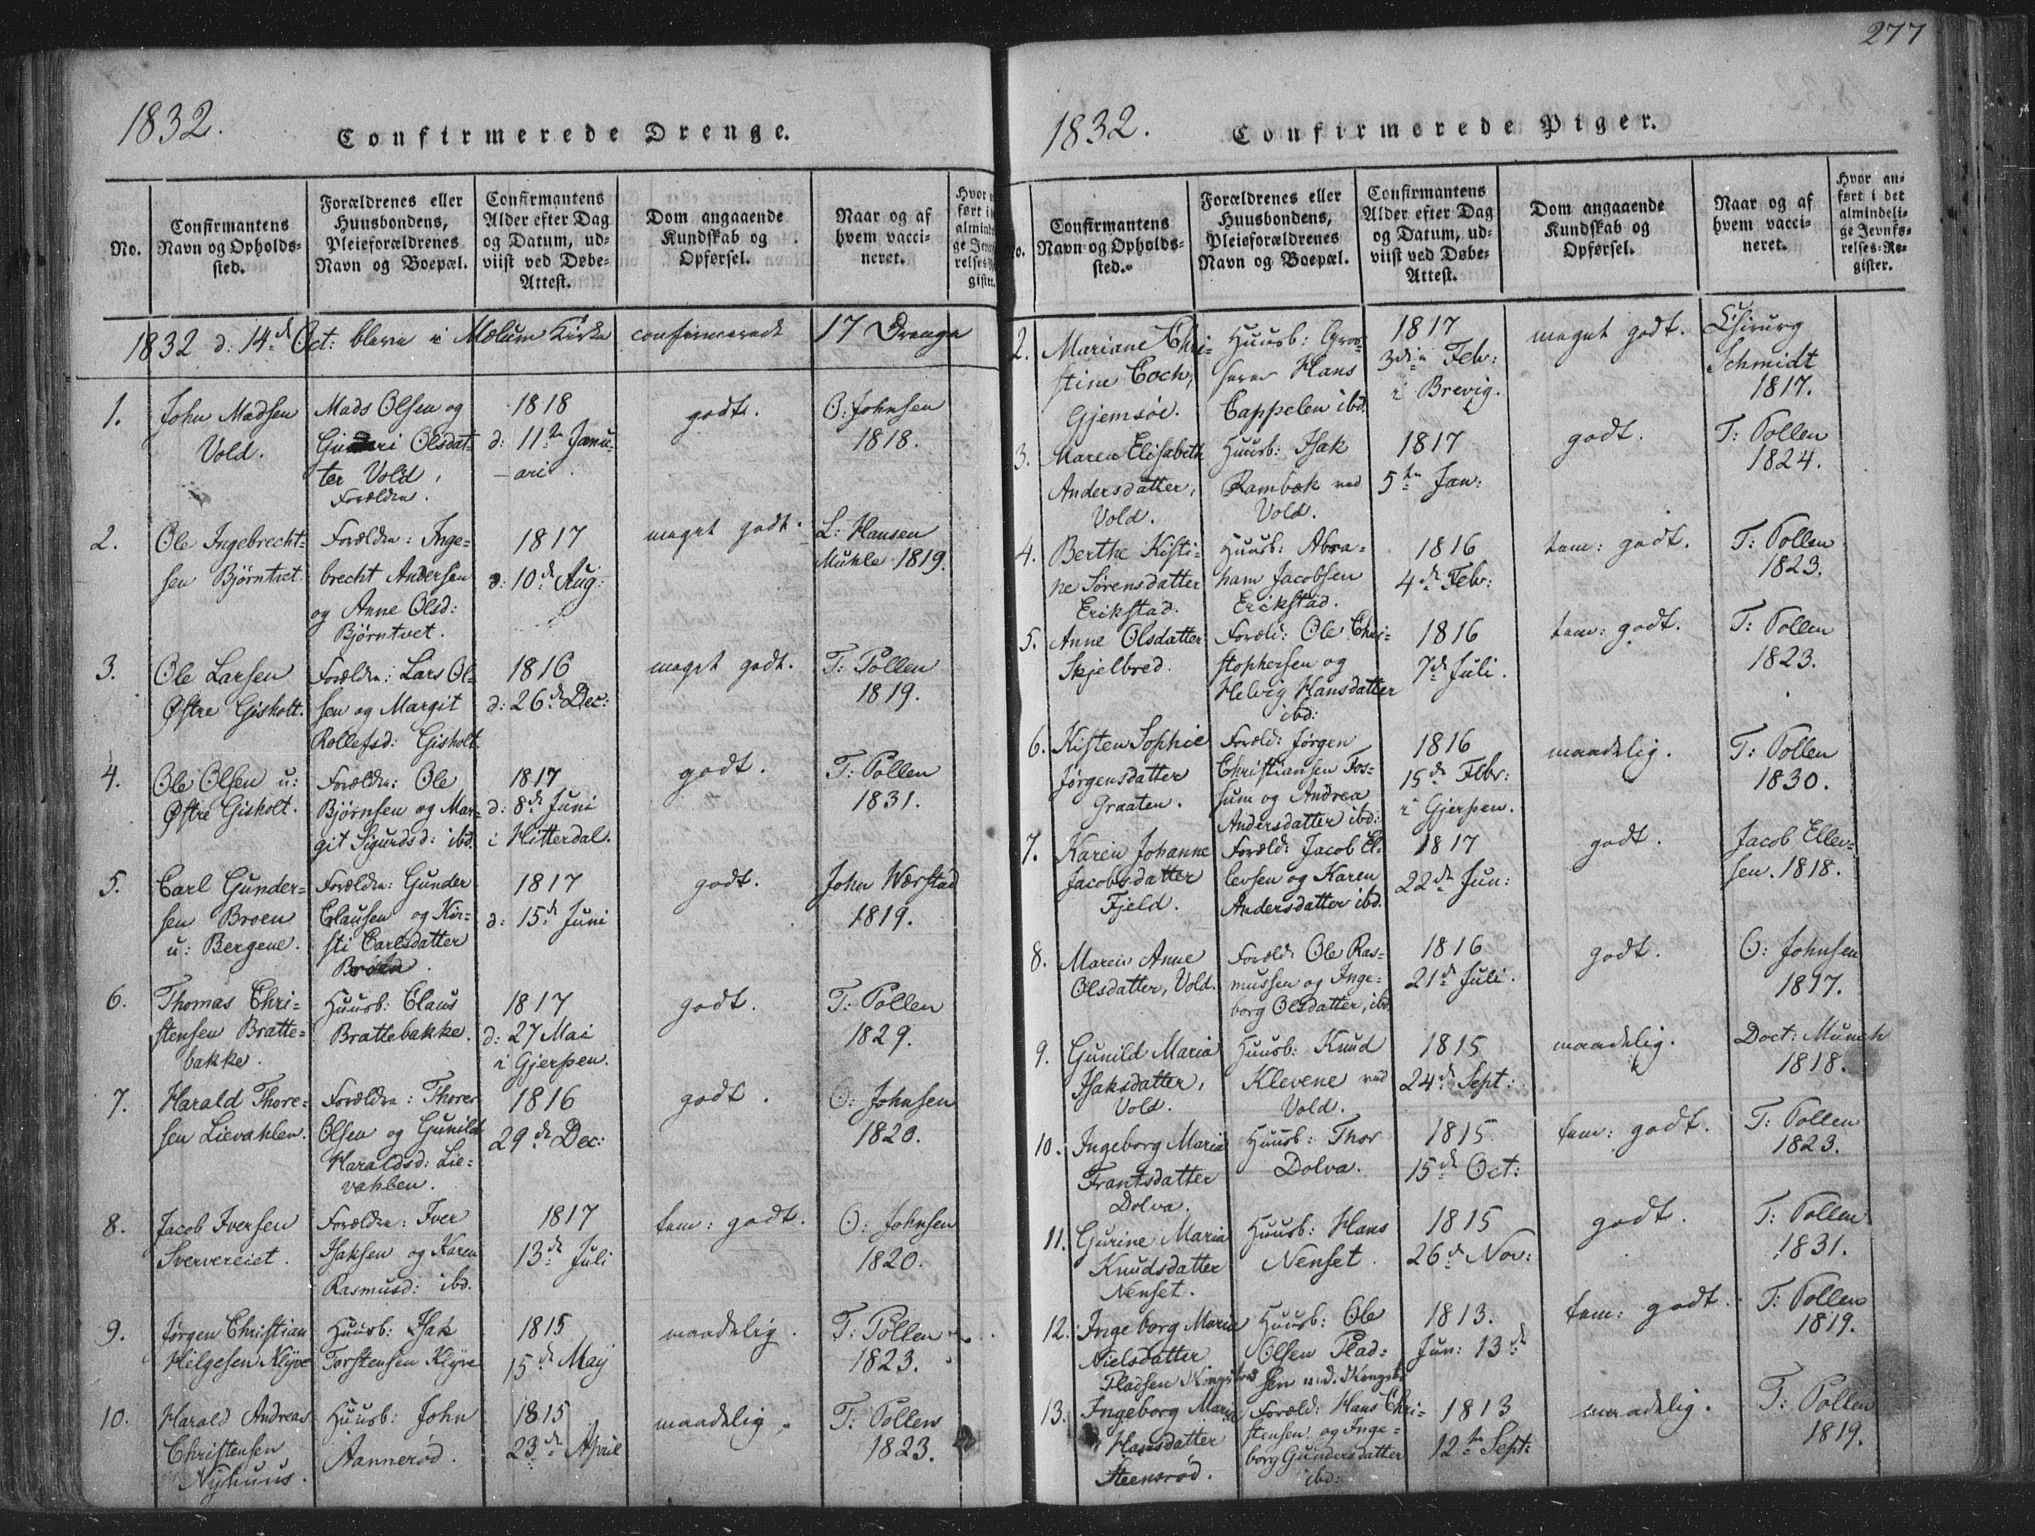 277
1832.
Confirmerede Drenge.
No.
Confirmantens
Navn og Opholds-
sted.
Forældrenes eller
Huusbondens,
Pleieforældrenes
Navn og Boepæl.
Confirmantens
Alder efter Dag
og Datum, ud-
viist ved Døbe-
Attest.
Dom angaaende
Kundskab og
Opførsel.
Naar og af
hvem vacci-
neret.
1832 d: 14de Oct: bleve i Mælum Kirke confirmerede 17 Drenge
1.
John Madsen
Vold.
Mads Olsen og
Olsdat-
ter Vold,
Forældre.
1818
d: 11te Janu-
ari.
godt.
O: Johnsen
1818.
2.
Ole Ingebrecht-
sen Björntvet
Forældre: Inge-
brecht Andersen
og Anne Olsd:
Björntvet.
1817
d: 10de Aug:
meget godt.
L: Hansen
Muhle 1819.
3.
Ole Larsen
Østre Gisholt.
Forældre: Lars Ol-
sen og Margit
Rollefsd: Gisholt.
1816
d: 26de Dec:
meget godt.
T: Pollen
1819.
4.
Ole Olsen u:
Østre Gisholt.
Forældre: Ole
Bjørnsen og Mar-
git Sigurdsd: ibd.
1817
d: 8de Juni
i Hitterdal.
godt.
T: Pollen
1831.
5.
Carl Gunder-
sen Broen
u: Bergene.
Forældre: Gunder
Clausen og Kir-
sti Carlsdatter
Broen.
1817
d: 15de Juni
godt.
John Wærstad
1819.
6.
Thomas Chri-
stensen Bratte-
bakke.
Huusb: Claus
Brattebakke.
1817
d: 27 Mai
i Gjerpen.
godt.
T: Pollen
1829.
7.
Harald Thore-
sen Lievahlen.
Forældre: Thorer
Olsen og Gunild
Haraldsd: Lie-
vahlen.
1816
29de Dec:
godt.
O: Johnsen
1820.
8.
Jacob Iversen
Sververeiet.
Forældre: Iver
Isaksen og Karen
Rasmusd: ibd.
1817
13de Juli
tem: godt.
O: Johnsen
1820.
9.
Jørgen Christian
Helgesen Klyve
Huusb: Isak
Torstensen Klyve
1815
15de Maj
maadelig.
T: Pollen
1823.
10.
Harald Andreas
Christensen
Nyhuus.
Huusb: John
Aannerød.
1815
23de April
maadelig.
T: Pollen
1823.
1832.
Confirmerede Piger.
No.
Confirmantens
Navn og Opholds-
sted.
Forældrenes eller
Huusbondens,
Pleieforældrenes
Navn og Boepæl.
Confirmantens
Alder efter Dag
og Datum, ud-
viist ved Døbe-
Attest.
Dom angaaende
Kundskab og
Opførsel.
Naar og af
hvem vacci-
neret.
Hvor an-
ført i det
almindeli-
ge Jevnfø-
relses-Re-
gister.
2.
Mariane Chri-
stine Coch,
Gjemsöe.
Huusb: Gros-
serer Hans
Cappelen ibd.
1817
3die Feb:
i Brevig.
meget godt.
Chirurg
Schmidt
1817.
3.
Maren Elisabeth
Andersdatter,
Vold.
Huusb: Isak
Rambæk ved
Vold.
1817
5te Jan:
godt.
T: Pollen
1824.
4.
Berthe Kisti-
ne Sørensdatter
Erikstad.
Huusb: Abra-
ham Jacobsen
Erikstad.
1816
4de Feb:
tem: godt.
T: Pollen
1823.
5.
Anne Olsdatter
Skjelbred.
Foræld: Ole Chri-
stophersen og
Helvig Hansdatter
ibd:
1816
7de Juli.
tem: godt.
T: Pollen
1823.
6.
Kisten Sophie
Jørgensdatter
Graaten.
Foræld: Jørgen
Christiansen Fos-
sum og Andrea
Andersdatter ibd:
1816
15de Febr:
i Gjerpen.
maadelig.
T: Pollen
1830.
7.
Karen Johanne
Jacobsdatter
Fjeld.
Foræld: Jacob El-
levsen og Karen
Andersdatter ibd.
1817
22de Jun:
godt.
Jacob Ellev-
sen. 1818.
8.
Maren Anne
Olsdatter, Vold.
Foræld: Ole Ras-
mussen og Inge-
borg Olsdatter, ibd.
1816
21de Juli.
godt.
O: Johnsen
1817.
9.
Gunild Maria
Isaksdatter,
Vold.
Huusb: Knud
Klevene ved
Vold.
1815
24de Sept:
maadelig.
Doct: Munch
1818.
10.
Ingeborg Maria
Frantsdatter
Dolva.
Huusb: Thor
Dolva.
1815
15de Oct:
tem: godt.
T: Pollen
1823.
11.
Gurine Maria
Knudsdatter
Nenset.
Huusb: Hans
Nenset.
1815
26de Nov:
godt.
T: Pollen
1831.
12.
Ingeborg Maria
Nielsdatter
Fladsen
Huusb: Ole
Olsen Flad-
sen
1813.
Jun: 13de
tem: godt.
T: Pollen
1819.
13.
Ingeborg Maria
Hansdatter
Steensrød.
Foræld: Hans Chri-
stensen og Inge-
borg Gundersdatter
ibd:
1813
12te Sept:
maadelig.
T: Pollen
1819.